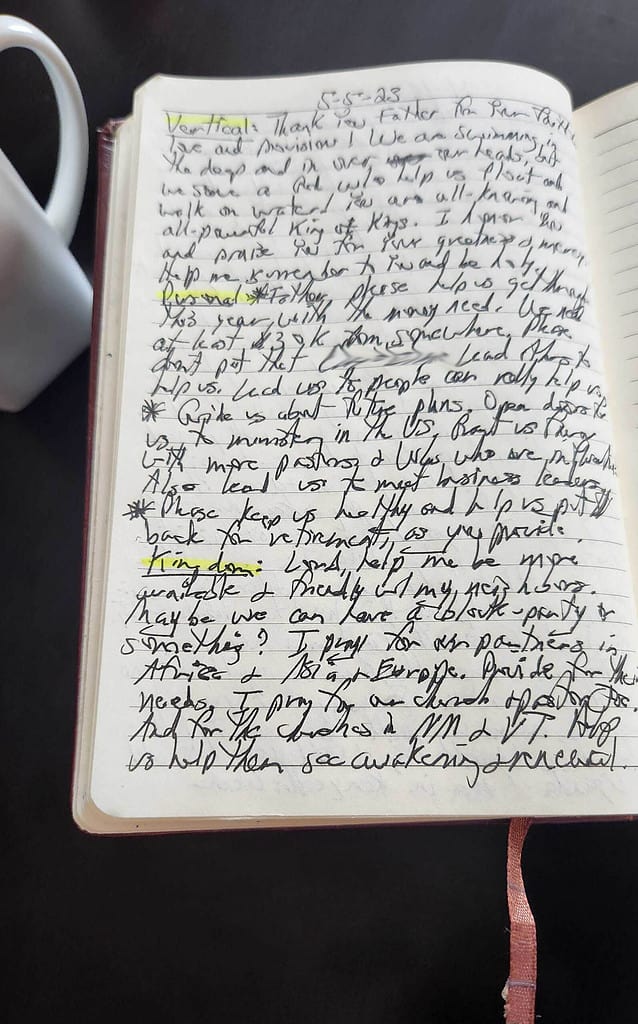 5-5-23
Vertical: Thank You Father for Your
love and provision! We are swimming in
the deep and in over our heads, but
we serve a God who help us float and
walk on water! You are all-knowing and
all-powerful King of Kings. I honor You
and praise You for Your greatness & mercy.
Help me surrender to You and be holy.
Personal: * Father, please help us get through
this year, with the money need. We need
at least $30k from somewhere. Please
don't put that Lead others to
help us. Lead us to people can really help us.
* Guide us about future plans. Open doors for
us to ministry in the US,
with more pastors & who are in
Also lead us to meet business leaders
* Please keep us healthy and help us put $
back for retirement, as you provide.
Kingdom: Lord, help me be more
available & friendly w/ my neighbors.
Maybe we can have a block-party or
something? I pray for our partners in
Africa & Asia & Europe. Provide for their
needs. I pray for our church & pastor
And for the churches in NM & VT. Help
us help them see awakening & renewal.